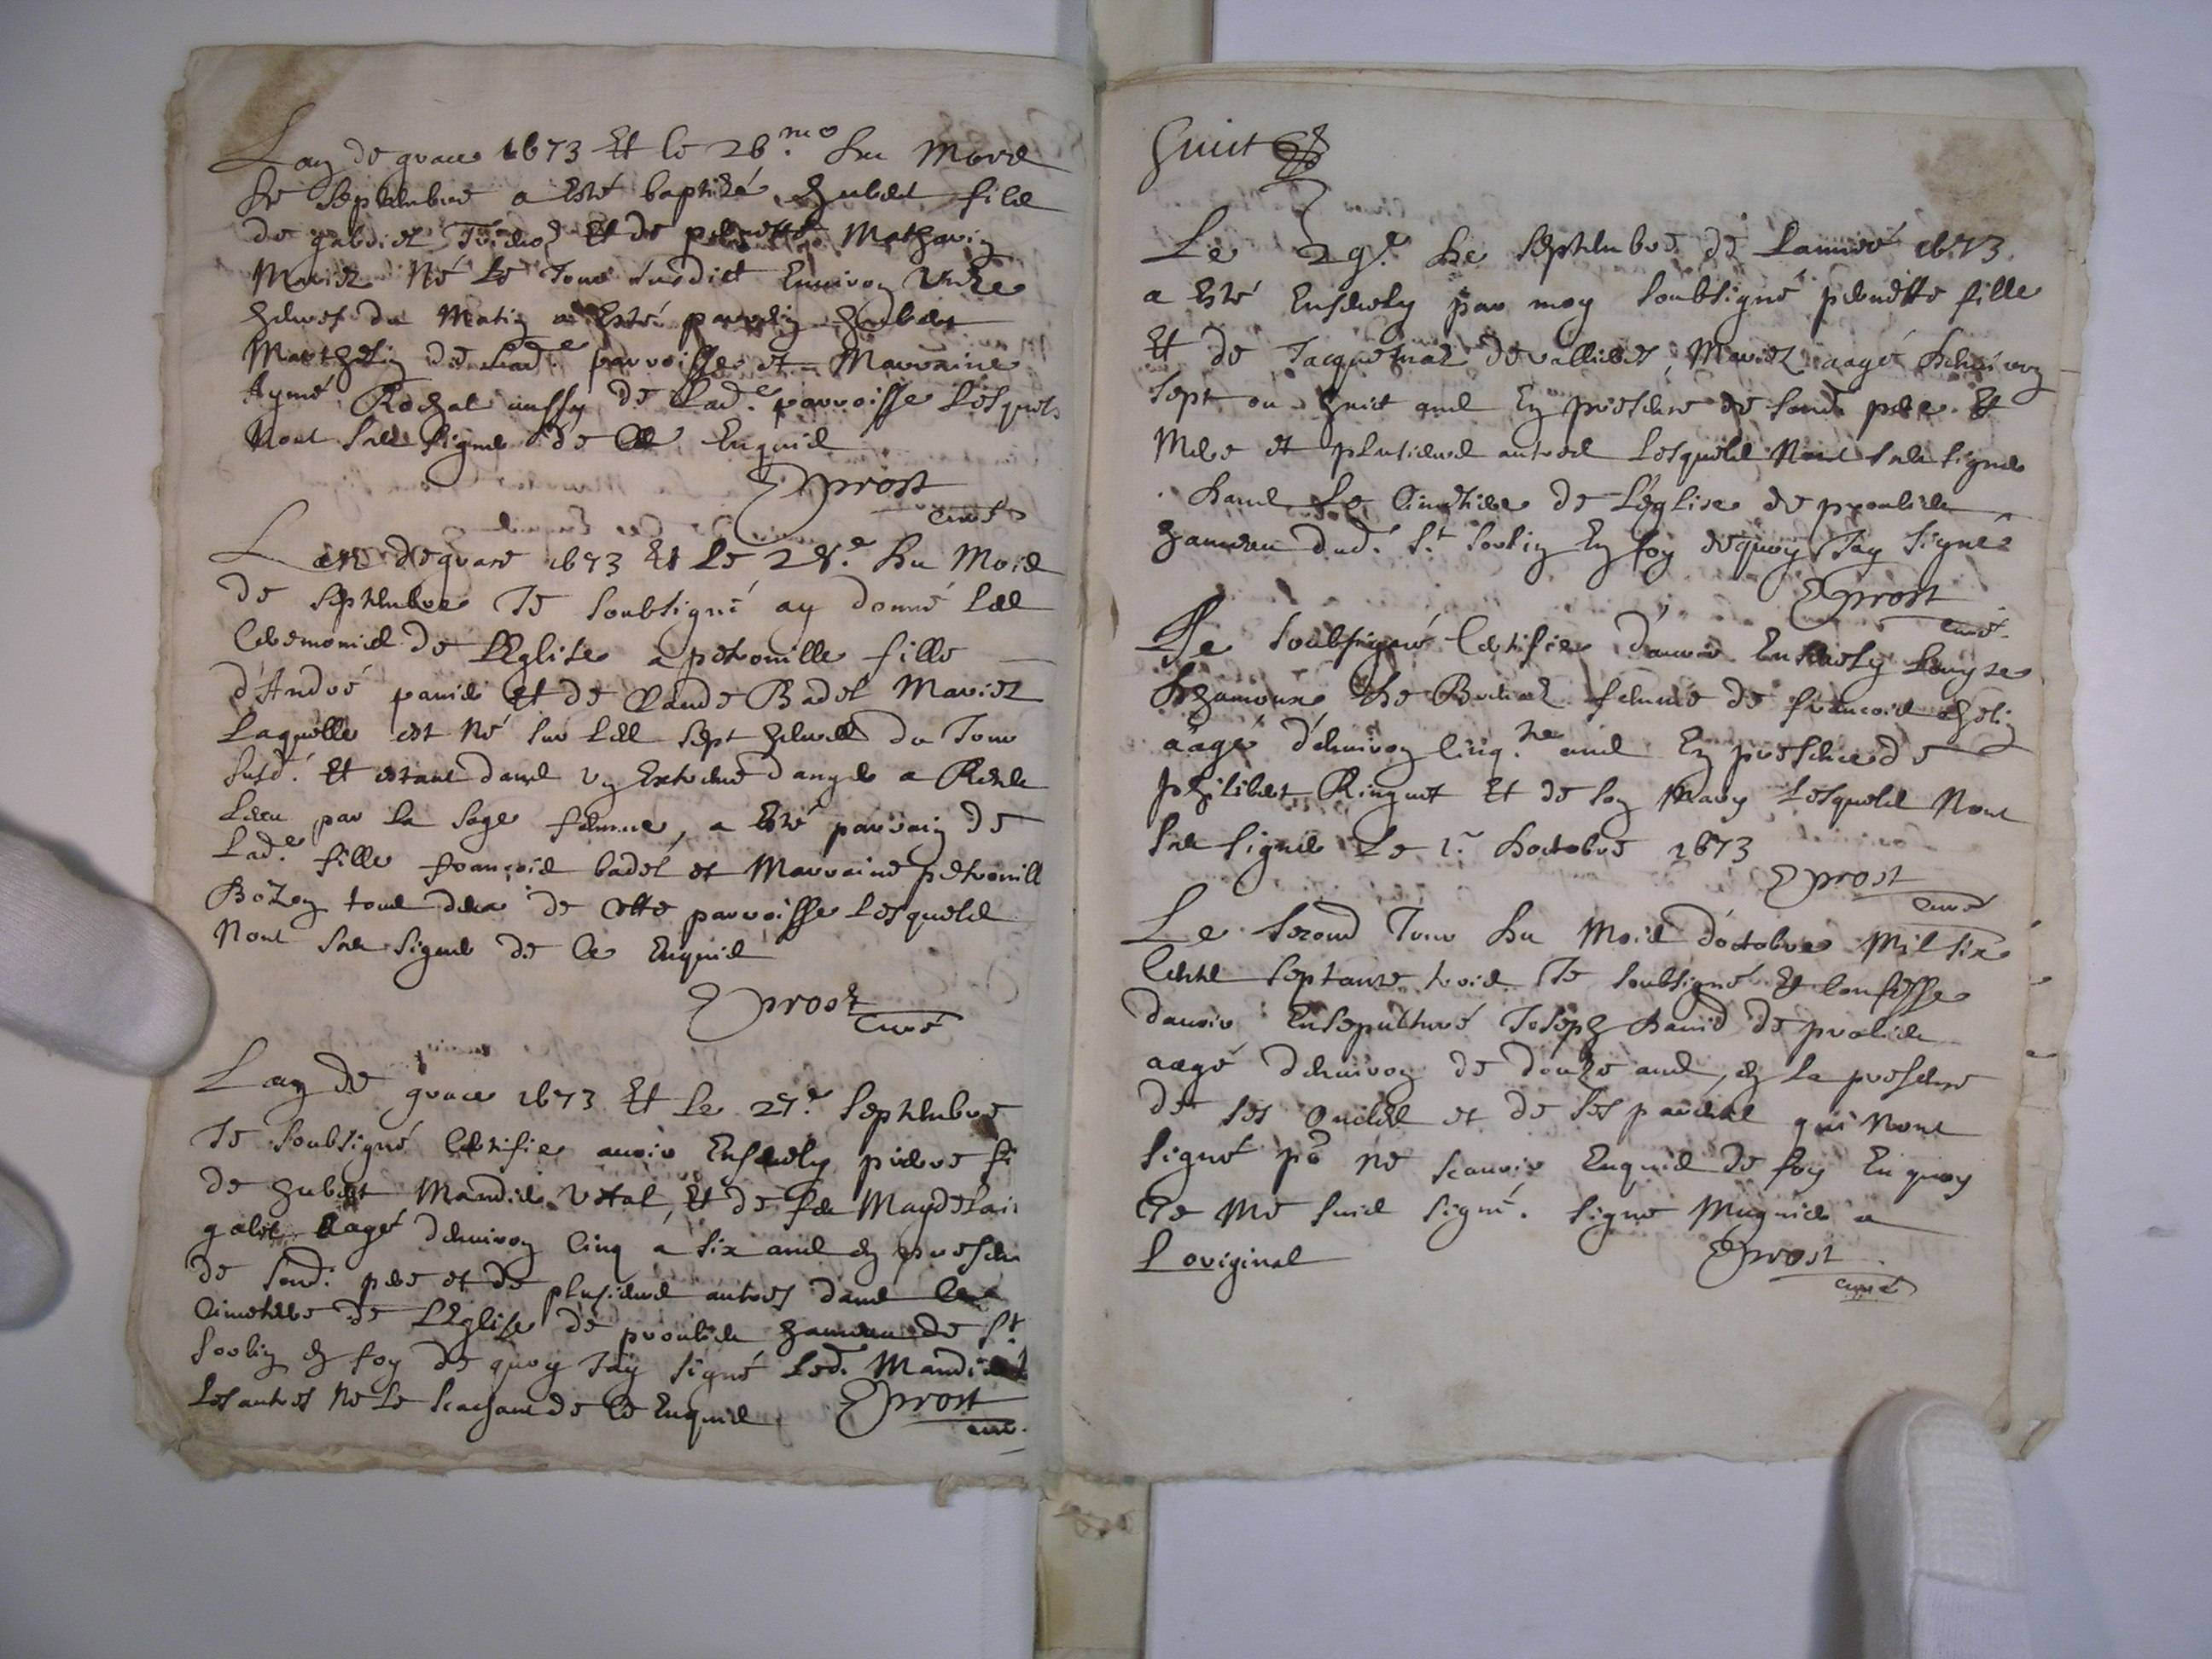 Lan de grace 1673 Et le 26.me du Mois
de Septembre a Esté baptizé hubert filz
de gabriel Et de pernette Mathevin
Mariez Né Le Jour susdict Environ Unze
heures du Matin a Esté parrein hubert
Marthelin de Lad.e parroisse et Marraine
Aymé Rochat aussy de Lad.e parroisse Lesquels
Nont sceu signer de Ce Enquis
Eprost
curé
Lan de grace 1673 Et Le 28.e du Mois
de Septembre Je soubsigné ay donné Les
Ceremonies de L'Eglise a petronille fille
d'André et de Claude Badet Mariez
Laquelle est Né sur Les sept heures du Jour
susd. Et estant dans un Extreme danger a
L'eau par La sage femme, a Esté parrain de
Lad.e fille françois badet et Marraine petronill
Bozon tous deux de Cette parroisse Lesquels
Nont sceu signer de Ce Enquis
Eprost
Curé
Lan de grace 1673 Et Le 27.e Septembre
Je soubsigné Certifie avoir Ensevely pierre fi
de hubert Mandier Et de Magdelai
aagé denviron Cinq a six ans En presen
de sond. pere et de plusieurs autres dans Le
Cimetiere de L'Eglise de proulieu hameau de St
Sorlin En foy de quoy Jay signé Led. Mandi
Les autres Ne Le scachant de Ce Enquis Eprost
curé
huict
Le 29.e de Septembre de Lannée 1673
a Esté Ensevely par moy soubsigné pernette fille
Et de Jacquemaz devallieres, Mariez aagé denviron
sept ou huict ans En presence de sond. pere Et
Mere et plusieurs autres Lesquels Nont sceu signer
dans Le Cimetiere de L'église de proulieu
hameau dud. St Sorlin En foy dequoy Jay signé
Eprost
curé
Je soubsigné Certifie d'avoir Ensevely Louyse
femme de francois
aagé d'environ Cinq.te ans En presence de
philibert Ringuet Et de son Mary Lesquels Nont
sceu signer Le 1.r doctobre 1673
Eprost
Curé
Le second Jour du Mois d'octobre Mil six
Cents septante trois Je soubsigné Et Confesse
davoir Ensepulturé Joseph de prolieu
aagé denviron de douze ans, En La presence
de ses oncles et de ses parents qui Nont
signé po.r ne scavoir Enquis de foy En quoy
Je Me suis signé. signé Mugnier a
Loriginal
Eprost
curé